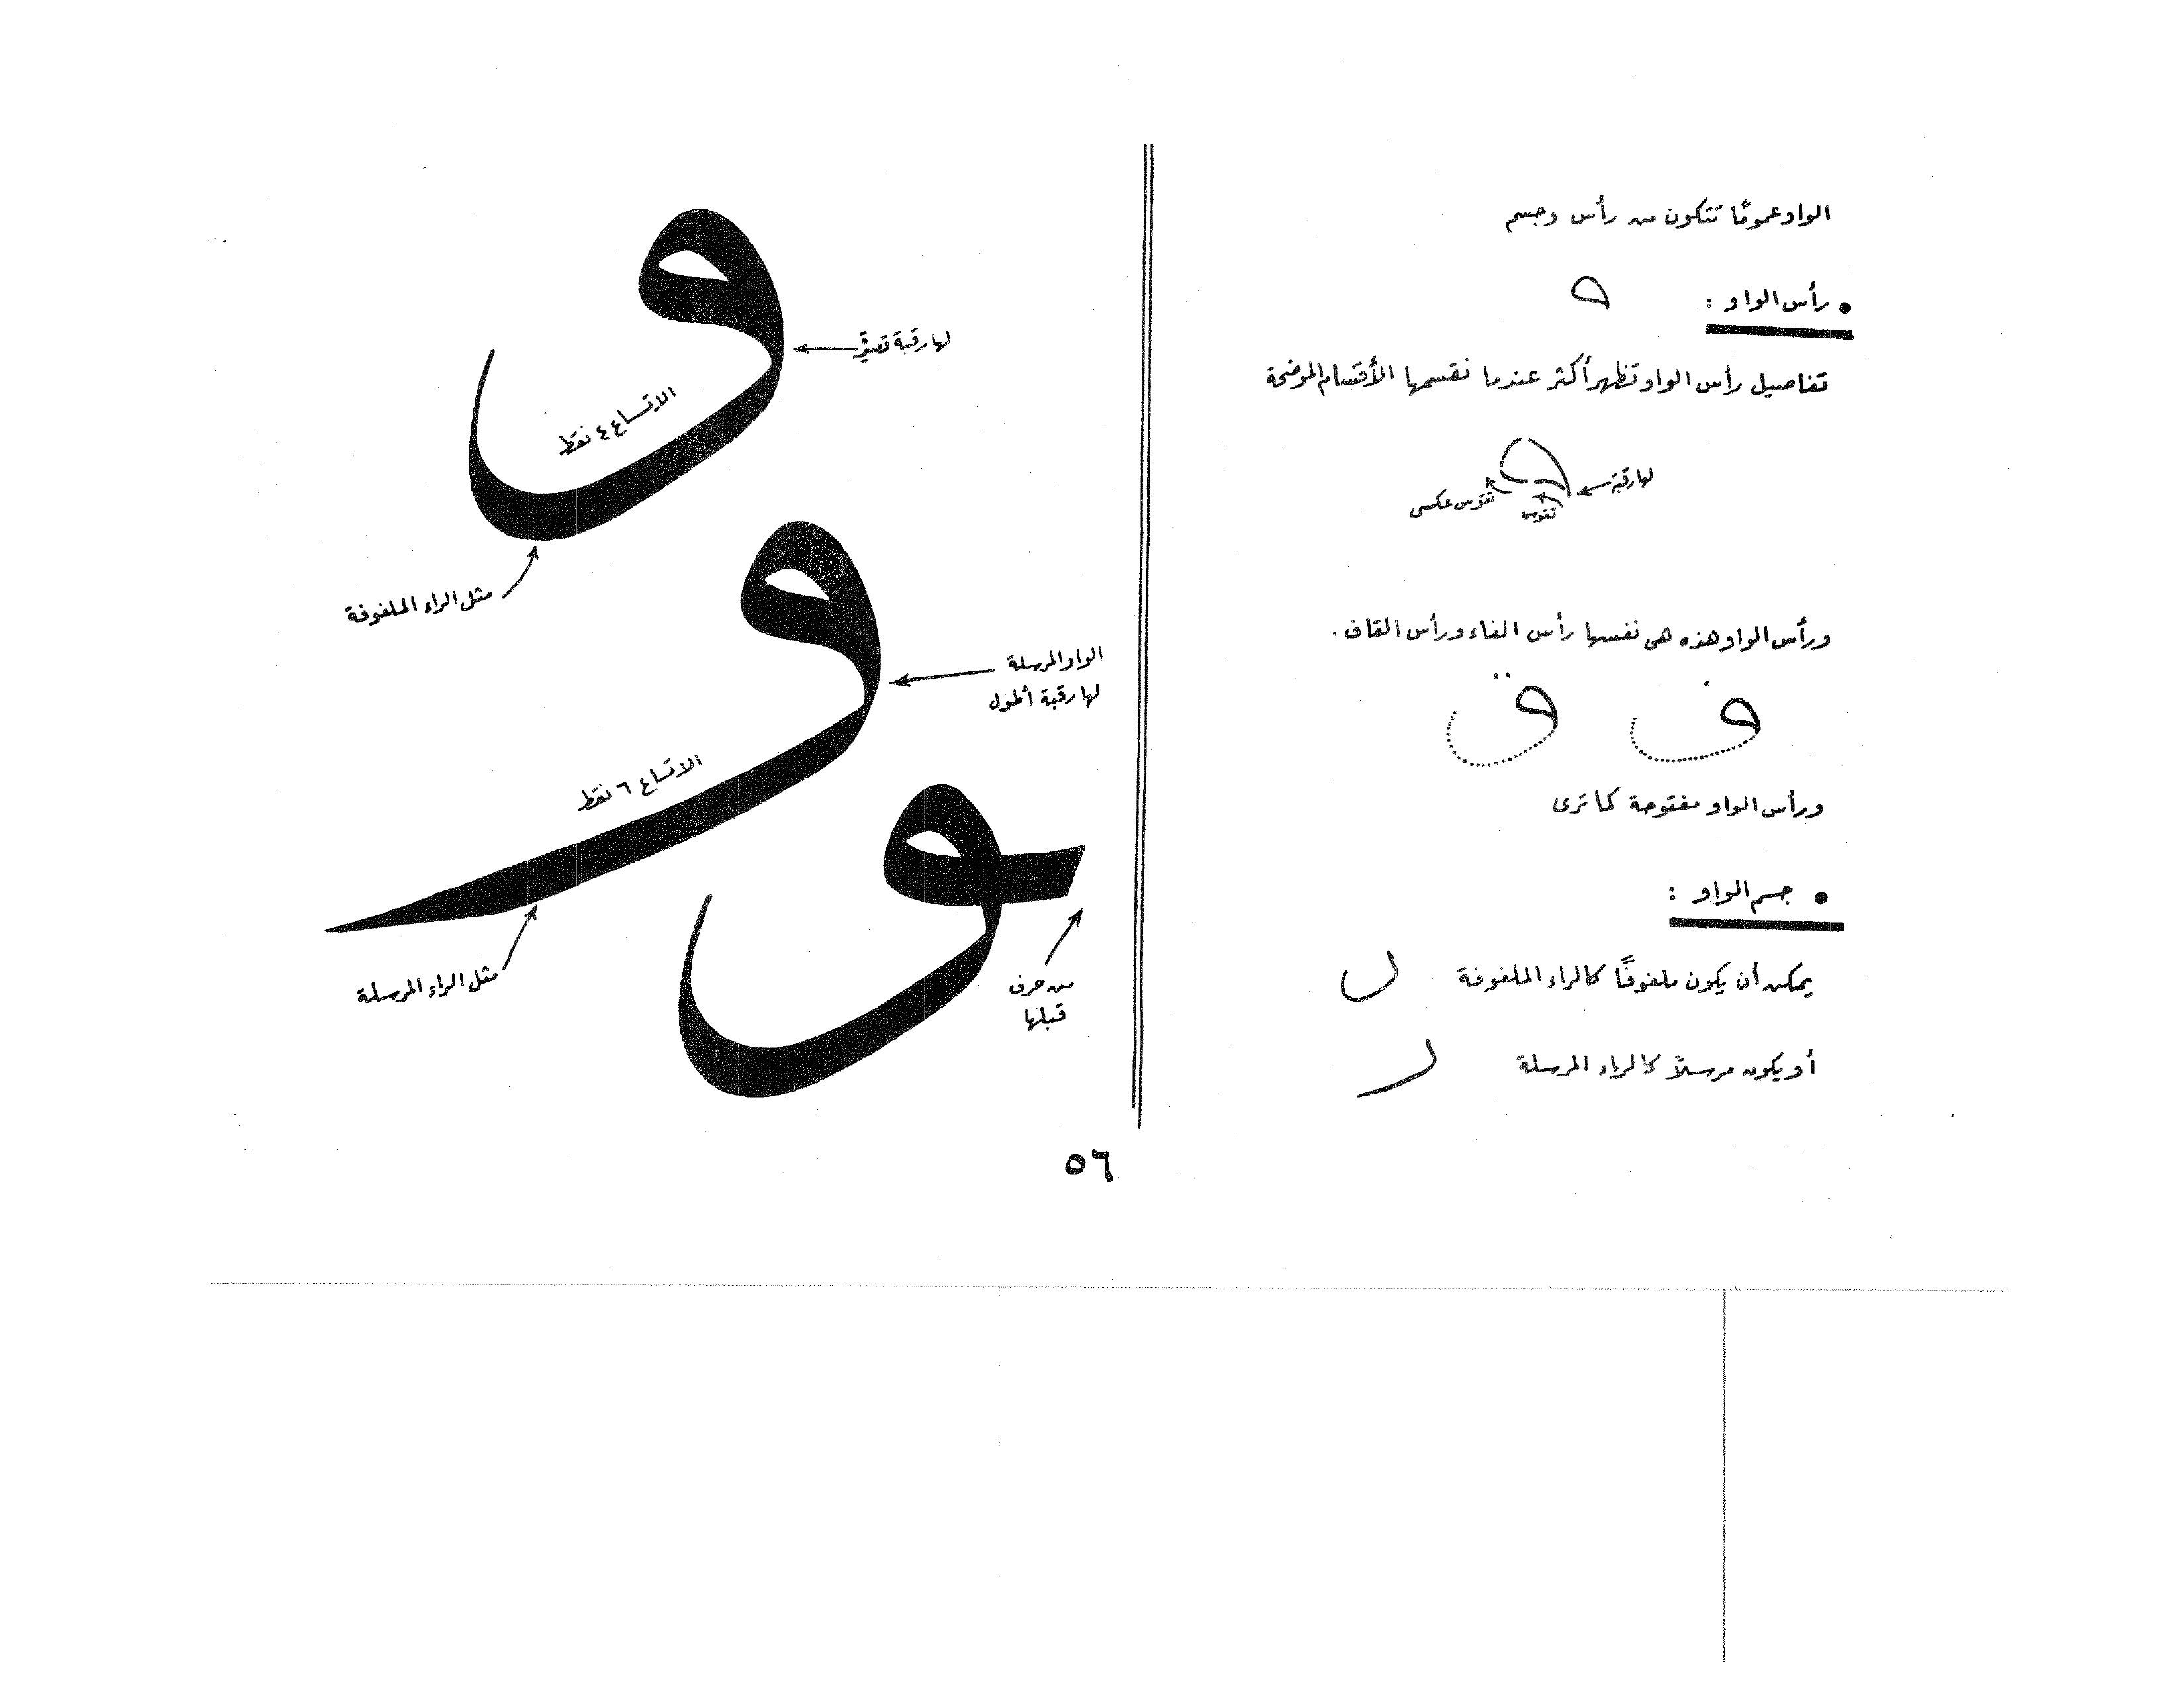 الواو عمومًا تتكون من رأس وجسم
• رأس الواو :
تفاصيل رأس الواو تظهر أكثر عندما نقسمها الأقسام الموضحة
لها رقبة
تقوس
تقوس عكسى
ورأس الواو هذه هى نفسها رأس الفاء ورأس القاف .
ف ق
ورأس الواو مفتوحة كما ترى
• جسم الواو :
يمكن أن يكون ملفوفًا كالراء الملفوفة ر
أو يكون مرسلاً كالراء المرسلة ر
و
لها رقبة قصيرة
الاتساع ٤ نقط
مثل الراء الملفوفة
و
الواو المرسلة
لها رقبة أطول
الاتساع ٦ نقط
مثل الراء المرسلة
ـو
من حرف
قبلها
٥٦